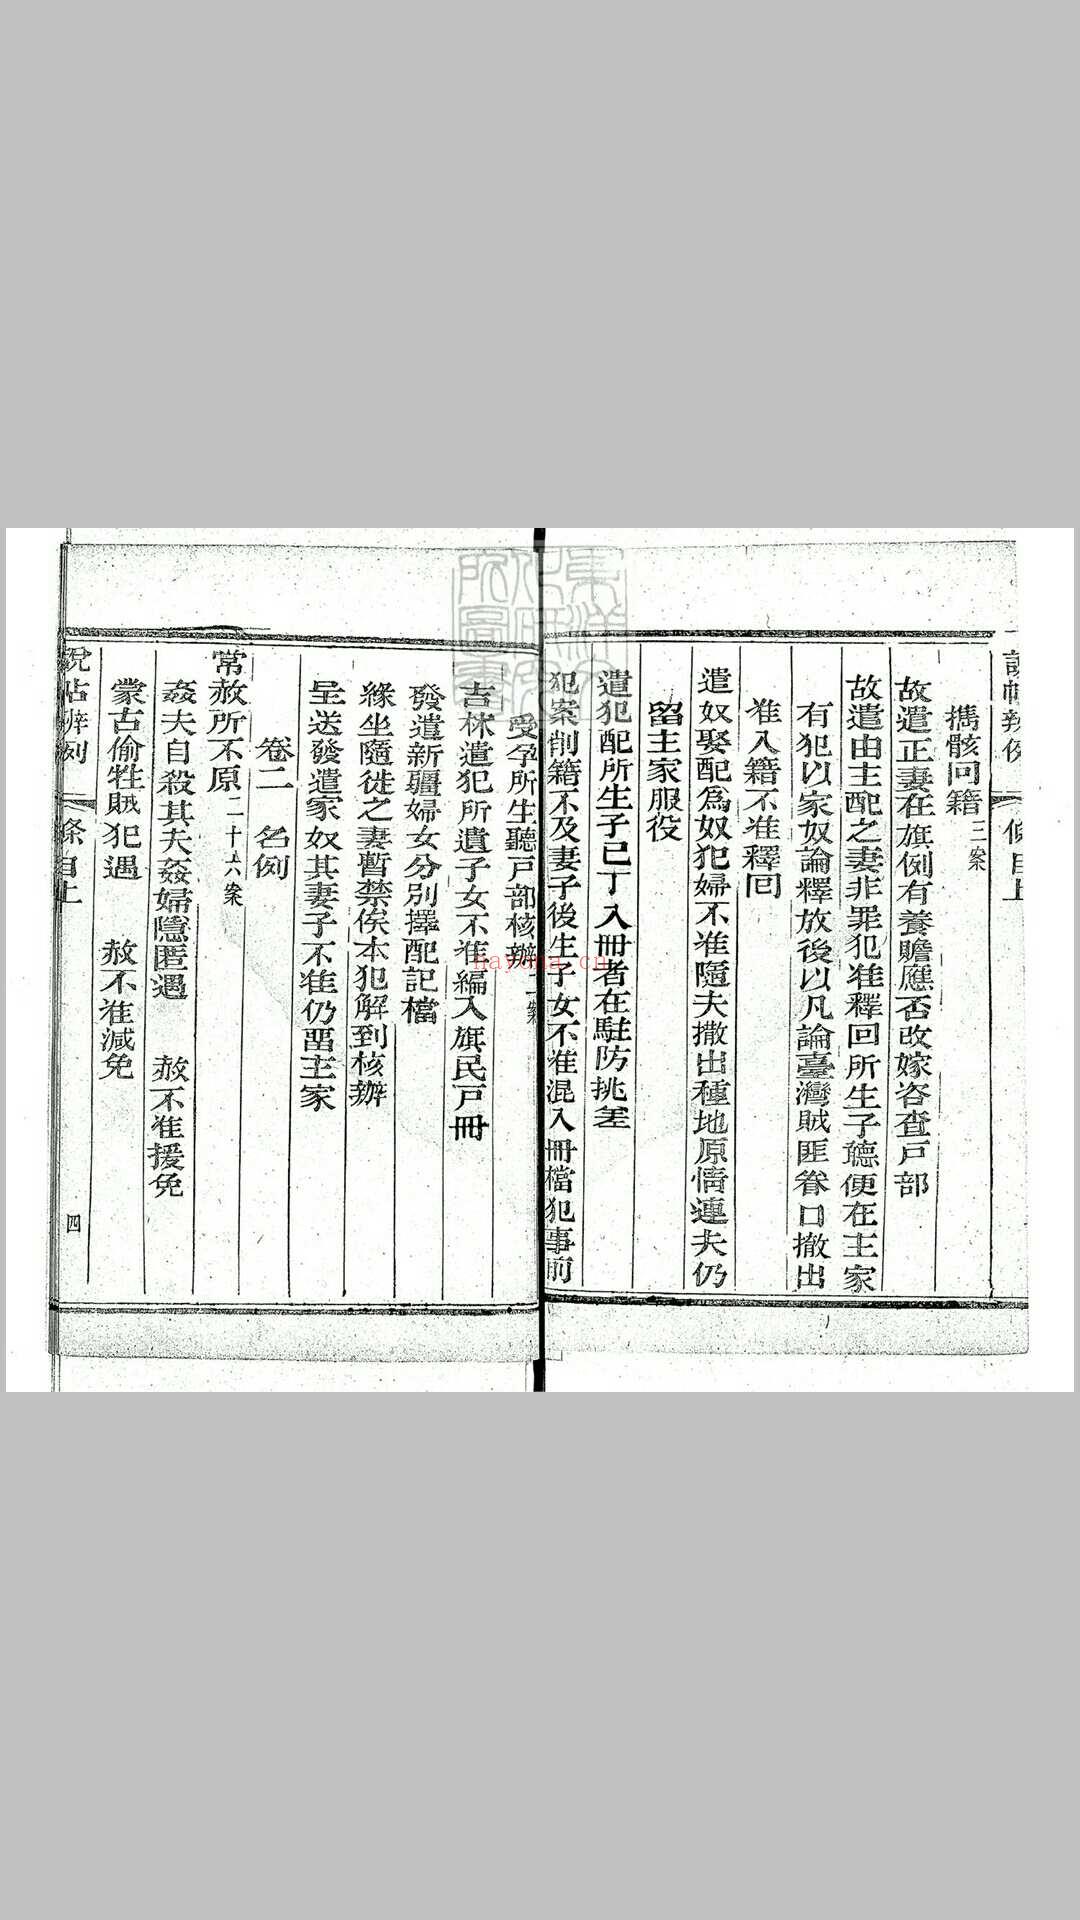 説帖辨例 條目上
攜骸回籍三案
故遣正妻在旗例有養贍應否改嫁咨查戸部
故遣由主配之妻非罪犯准釋回所生子聽便在主家
有犯以家奴論釋放後以凡論臺灣賊匪眷口撤出
准入籍不准釋回
遣奴娶配爲奴犯婦不准隨夫撤出種地原情連夫仍
留主家服役
遣犯配所生子已丁入冊者在駐防挑差
犯案削籍不及妻子後生子女不准混入冊檔犯事前
受孕所生聽戸部核辦二案
吉林遣犯所遺子女不准編入旗民戸冊
發遣新疆婦女分別擇配記檔
緣坐隨徙之妻暫禁俟本犯解到核辦
呈送發遣家奴其妻子不准仍畱主家
卷二 名例
常赦所不原二十五六案
姦夫自殺其夫姦婦隱匿遇 赦不准援免
蒙古偷牲賊犯遇 赦不准減免
説帖辨例 條目上 四
東洋文化研究所圖書
nayona.cn